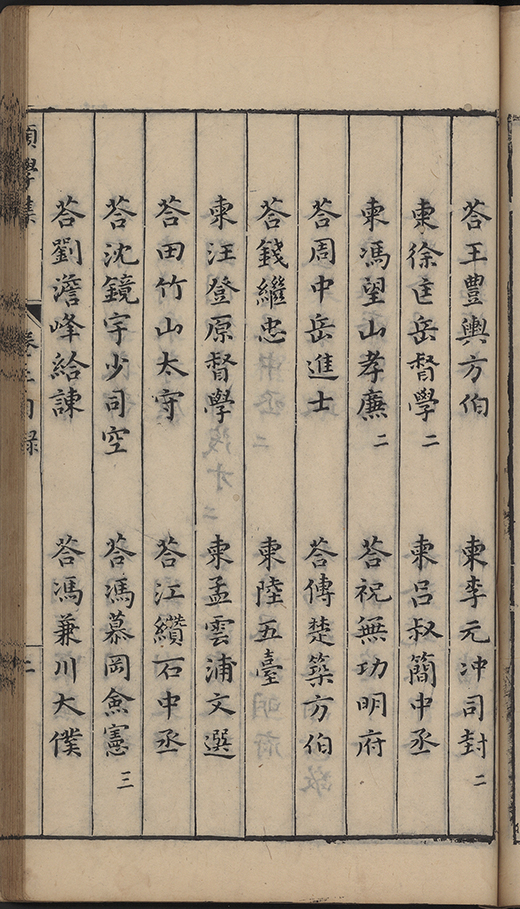 荅王豊輿方伯
柬李元冲司封二
柬徐匡岳督學二
柬吕叔簡中丞
柬馮望山孝廉二
荅祝無功明府
荅周中岳進士
荅傅楚築方伯
荅錢繼忠
柬陸五臺
柬汪登原督學
柬孟雲浦文選
荅田竹山太守
荅江纘石中丞
荅沈鏡宇少司空
荅馮慕岡僉憲三
荅劉澹峰給諫
荅馮兼川大僕
學集